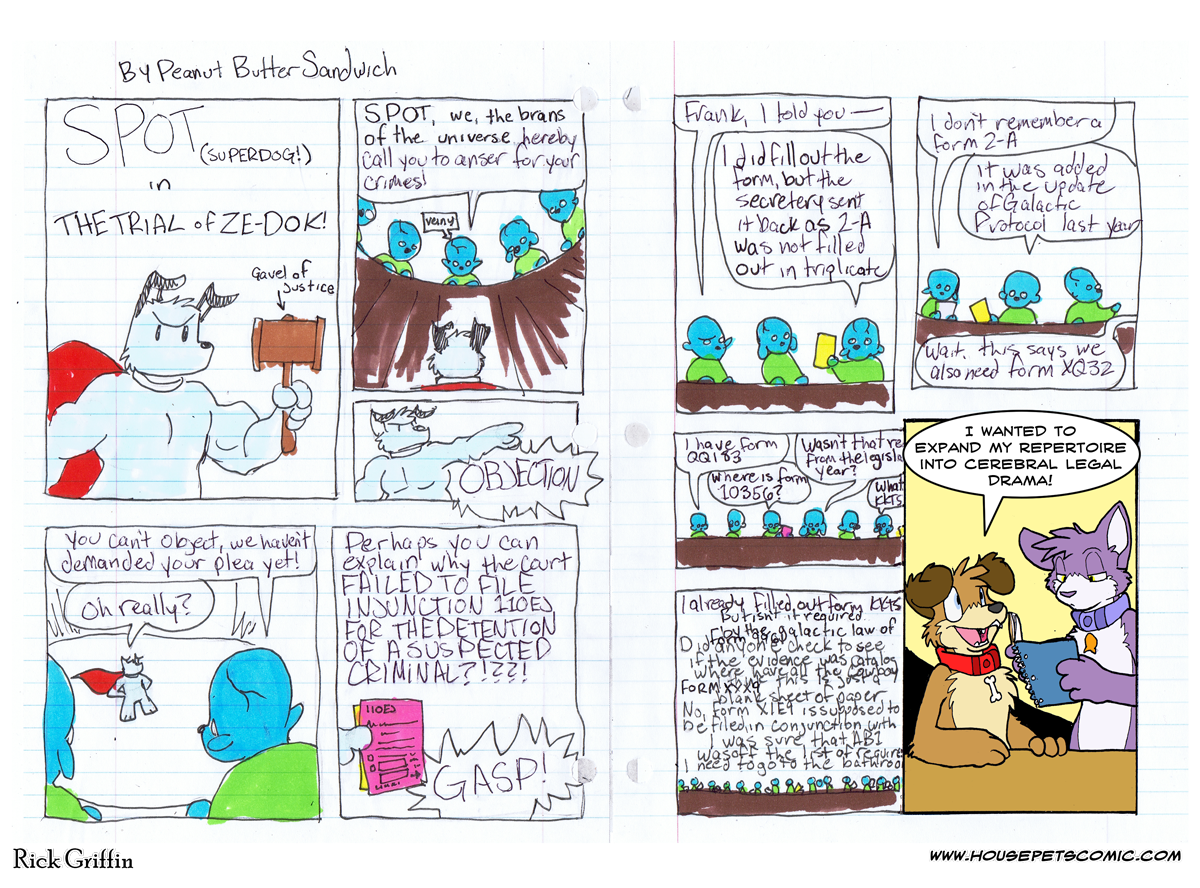 By Peanut Butter Sandwich
SPOT
(SUPERDOG!)
in
THE TRIAL of ZE-DOK!
Gavel of
Justice
SPOT, we, the brans
of the universe hereby
call you to anser for your
crimes!
veiny
OBJECTION
You can't object, we haven't
demanded your plea yet!
Oh really?
Perhaps you can
explain why the court
FAILED TO FILE
INJUNCTION 110EJ
FOR THE DETENTION
OF A SUSPECTED
CRIMINAL?!??!
110EJ
GASP!
Frank, I told you—
I did fill out the
form, but the
secretery sent
it back as 2-A
was not filled
out in triplicate
I don't remember a
form 2-A
it was added
in the update
of Galactic
Protocol last year
Wait, this says we
also need form XQ32
I have form
QQ183
Where is form
10356?
Wasn't that re
from the legisla
year?
What
KKTS
I already filled out form KKTS
But isn't it required
by the galactic law of
Did anyone check to see
if the evidence was catalog
where have all the cowboy
FORM XYX9
this is just a
blank sheet of paper
No, form X1E9 is supposed to
be filed in conjunction with
I was sure that AB1
was off the list of require
I need to go to the bathroo
I WANTED TO
EXPAND MY REPERTOIRE
INTO CEREBRAL LEGAL
DRAMA!
Rick Griffin
WWW.HOUSEPETSCOMIC.COM